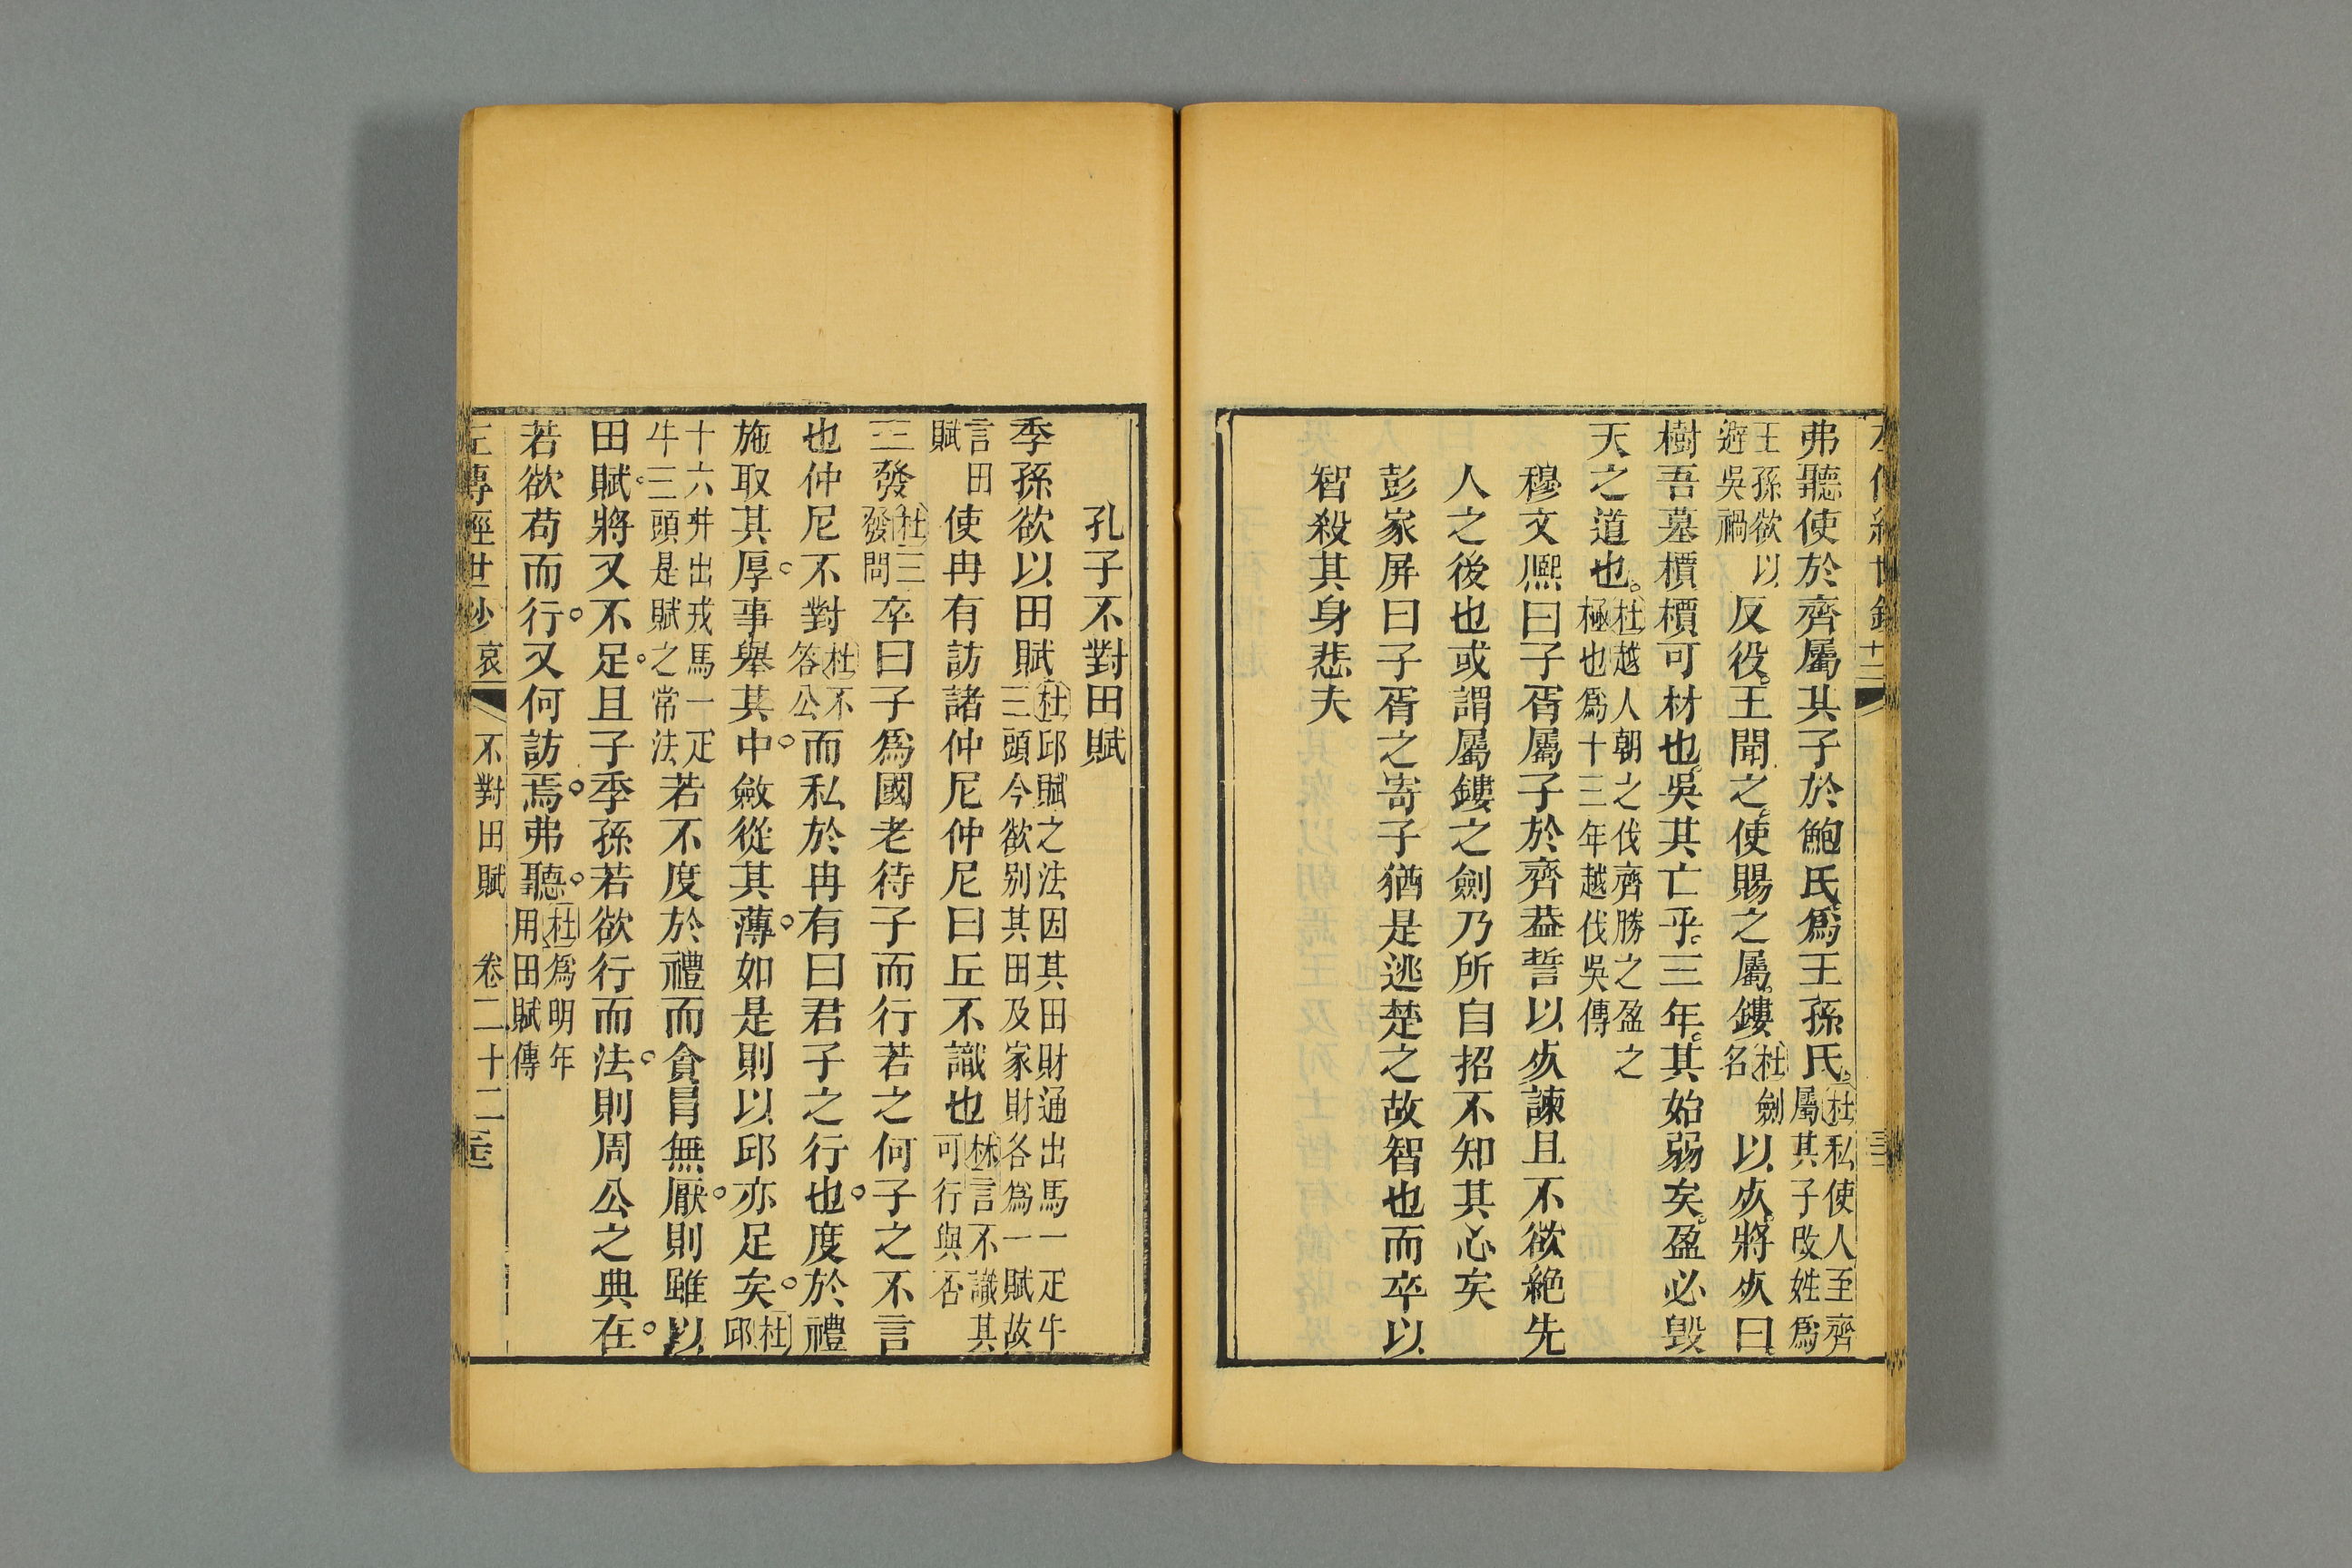 弗聽使於齊屬其子於鮑氏爲王孫氏杜私使人至齊屬其子改姓爲
王孫欲以避吳禍反役王聞之使賜之屬鏤杜劍名以死將死曰
樹吾墓檟檟可材也吳其亡乎三年其始弱矣盈必毀
天之道也杜越人朝之伐齊勝之盈之極也爲十三年越伐吳傳
穆文熈曰子胥屬子於齊葢誓以死諫且不欲絶先
人之後也或謂屬鏤之劍乃所自招不知其心矣
彭家屏曰子胥之寄子猶是逃楚之故智也而卒以
智殺其身悲夫
孔子不對田賦
季孫欲以田賦杜邱賦之法因其田財通出馬一疋牛三頭今欲別其田及家財各爲一賦故
言田賦使冉有訪諸仲尼仲尼曰丘不識也林言不識其可行與否
三發杜三發問卒曰子爲國老待子而行若之何子之不言
也仲尼不對杜不答公而私於冉有曰君子之行也度於禮
施取其厚事舉其中斂從其薄如是則以邱亦足矣杜邱
十六井出戎馬一疋牛三頭是賦之常法若不度於禮而貪冒無厭則雖以
田賦將又不足且子季孫若欲行而法則周公之典在
若欲苟而行又何訪焉弗聽杜爲明年用田賦傳
左傳經世鈔 哀 不對田賦 卷二十二